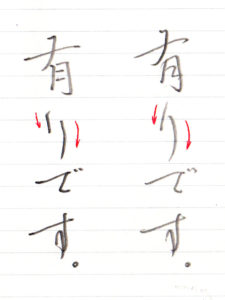 有りです。
有りです。